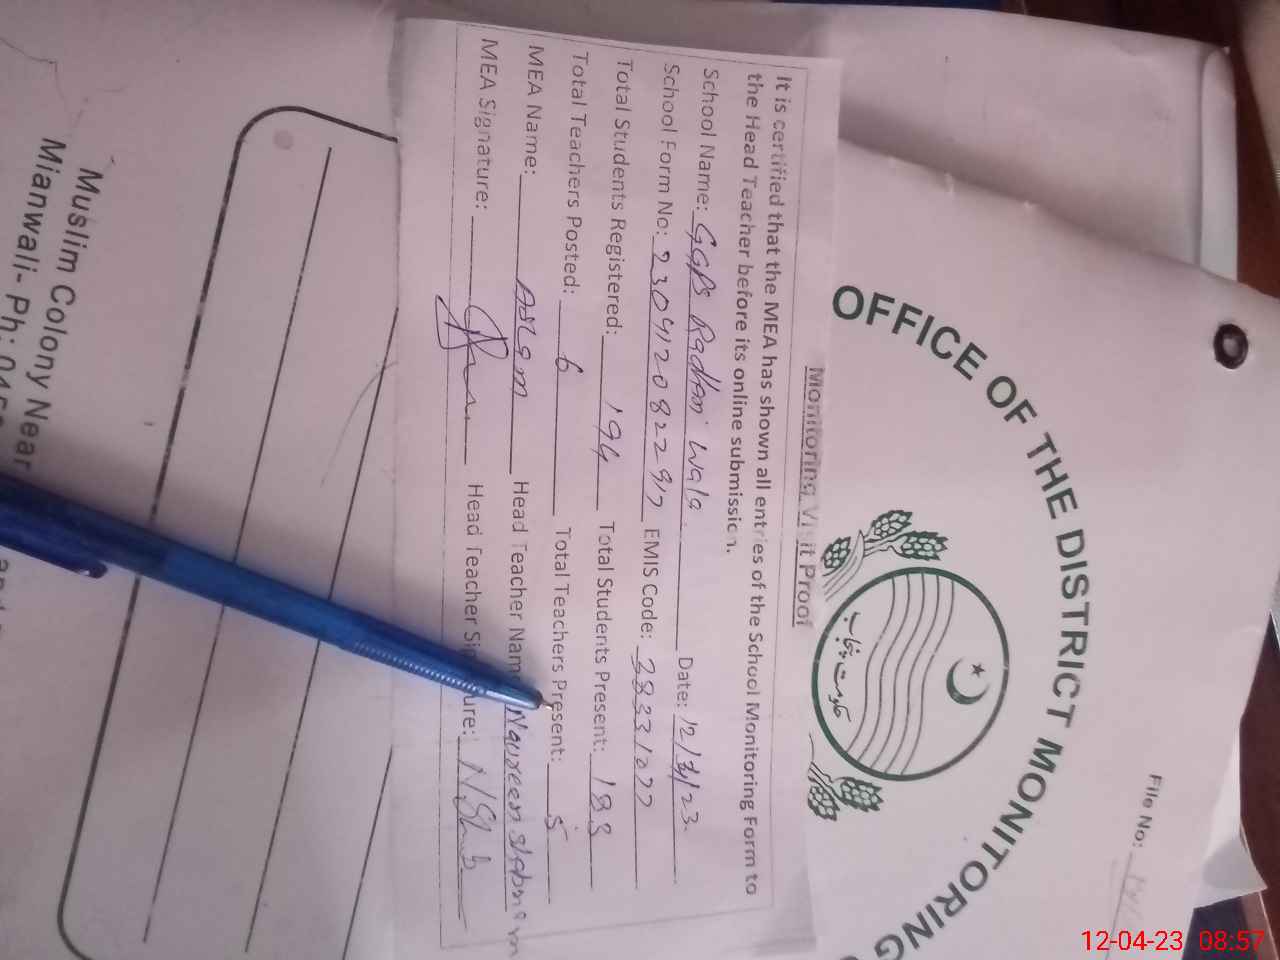 Monitoring Visit Proof
It is certified that the MEA has shown all entries of the School Monitoring Form to
the Head Teacher before its online submission.
School Name: GGPS Radhni Wala Date: 12/4/23.
School Form No: 2304120822917 EMIS Code: 38331077
Total Students Registered: 194 Total Students Present: 188
Total Teachers Posted: 6 Total Teachers Present: 5
MEA Name: Aslam Head Teacher Name Naureen Shabnam
MEA Signature: Head Teacher Signature: N.Shab
OFFICE OF THE DISTRICT MONITORING
حکومت پنجاب
File No:
Muslim Colony Near
Mianwali- Ph: 0459
12-04-23 08:57